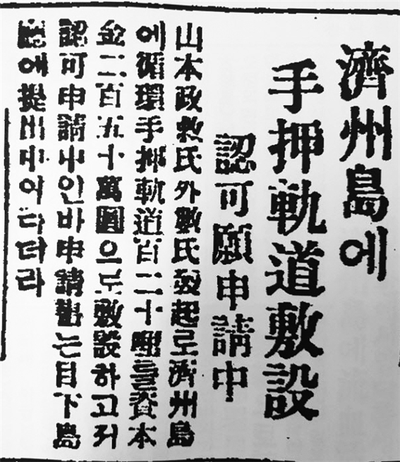 濟州島에
手押軌道敷設
認可願申請中
山本政敏氏外數氏發起로濟州島
에循環手押軌道百二十哩를資本
金二百五十萬圓으로敷設하고저
認可申請中인바申請書는目下島
廳에提出中이라더라